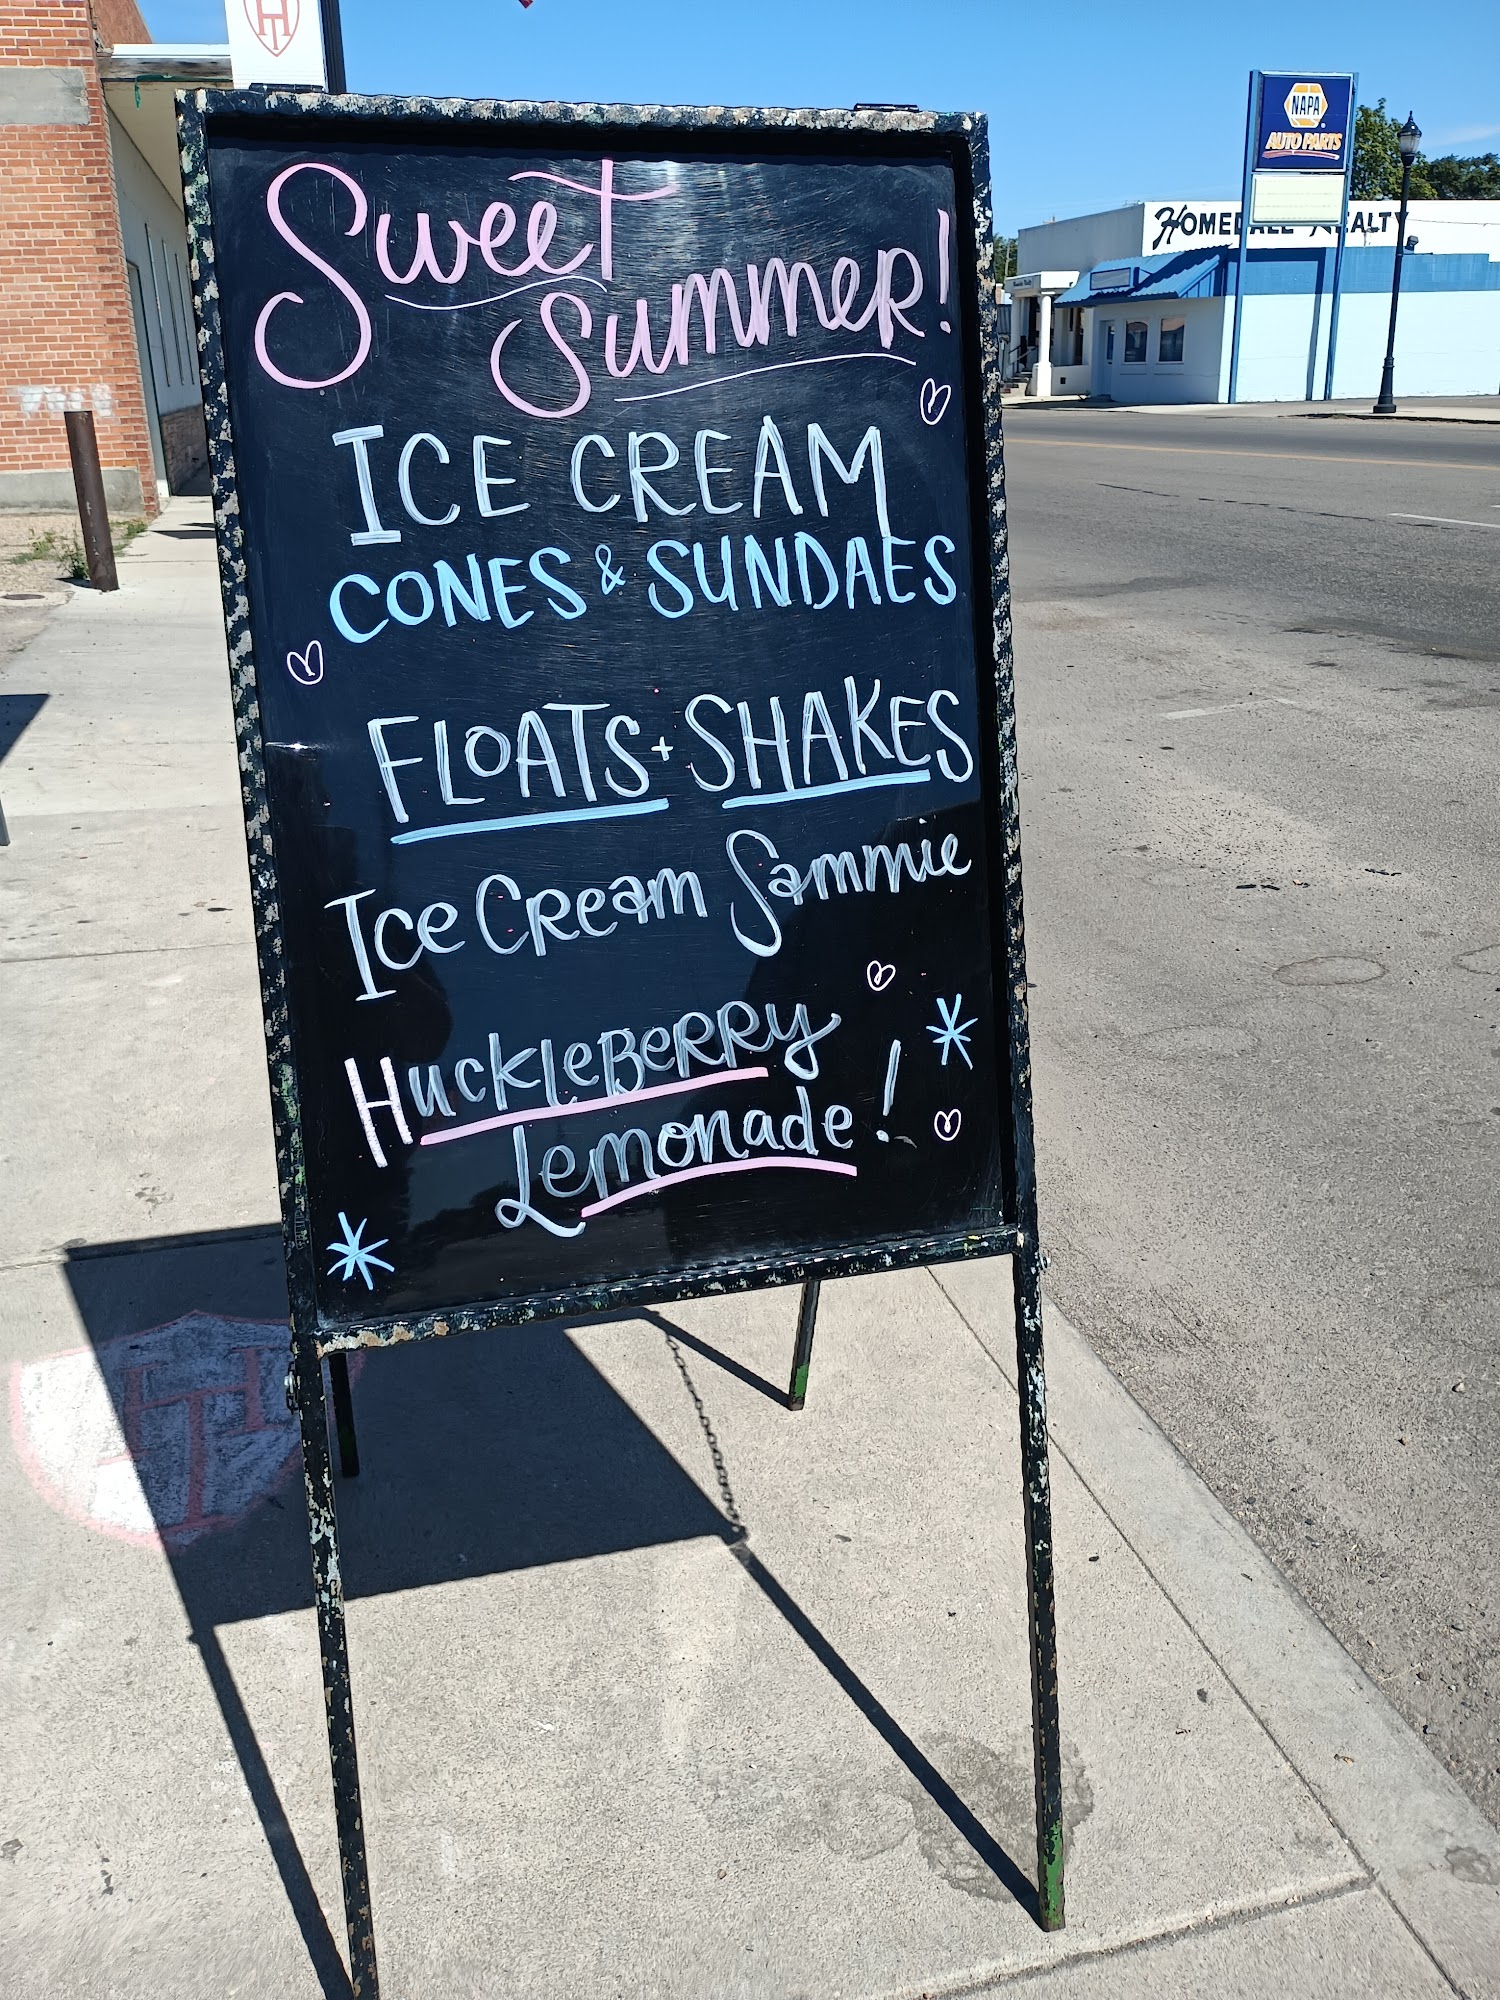 Sweet
Summer!
ICE CREAM
CONES & SUNDAES
FLOATS + SHAKES
Ice Cream Sammie
Huckleberry
Lemonade!
NAPA
AUTO PARTS
HOMEDALE REALTY
HT
HT